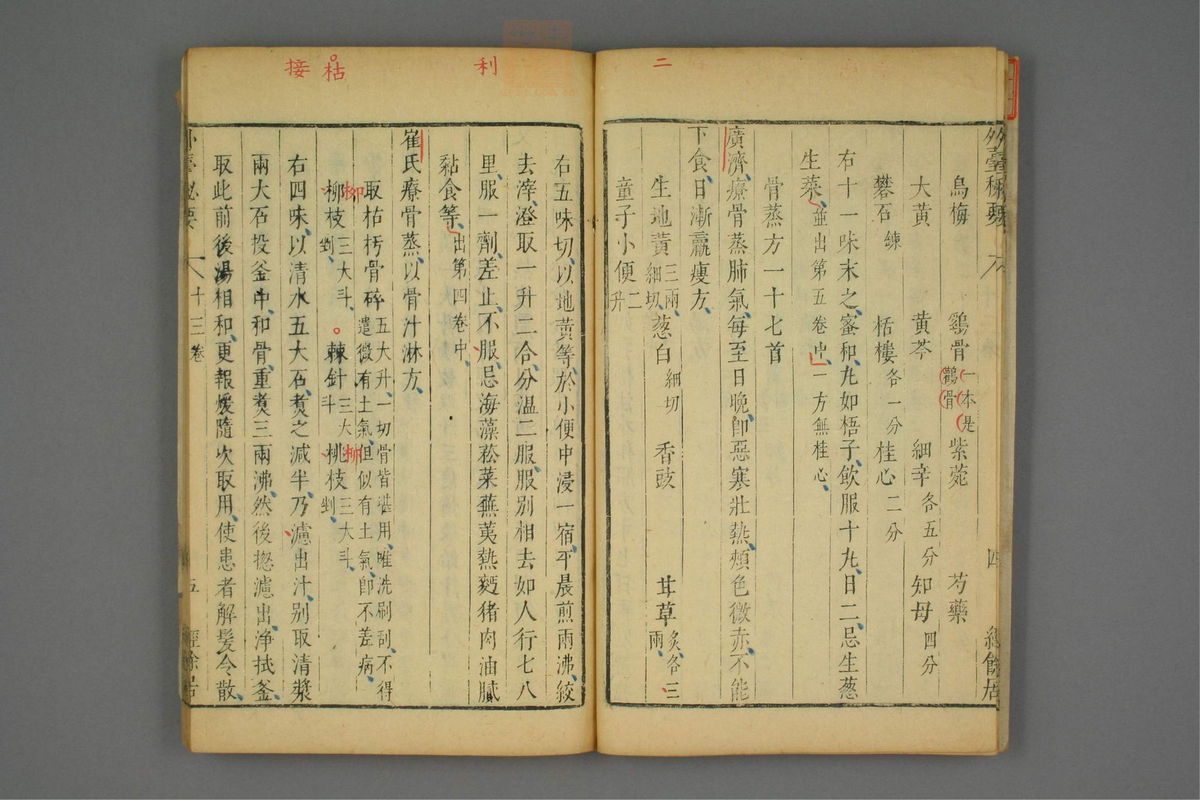 二
外臺秘要
四
經餘居
烏梅 鷄骨一本是鸛骨 紫菀 芍藥
大黃 黃芩 細辛各五分 知母四分
礬石鍊 栝樓各一分 桂心二分
右十一味末之蜜和丸如梧子飲服十九日二忌生葱
生菜並出第五卷中一方無桂心
骨蒸方一十七首
廣濟療骨蒸肺氣每至日晚卽惡寒壯熱頰色微赤不能
下食日漸羸瘦方
生地黃三兩細切 葱白細切 香豉 甘草炙各三兩
童子小便二升
利
接枯
右五味切以地黃等於小便中浸一宿平晨煎兩沸絞
去滓澄取一升二合分溫二服服別相去如人行七八
里服一劑差止不服忌海藻菘菜蕪荑熱麪猪肉油膩
黏食等出第四卷中
崔氏療骨蒸以骨汁淋方
取枯朽骨碎五大升一切骨皆堪用唯洗刷刮不得遣微有土氣但似有土氣卽不差病
柳
柳枝三大斗剉 棘針三大斗 桃枝三大斗剉
柳
右四味以清水五大石煑之減半乃濾出汁別取清漿
兩大石投釜中和骨重煑三兩沸然後揔濾出淨拭釜
取此前後湯相和更報煖隨次取用使患者解髮令散
外臺秘要
十三卷
五
經餘居